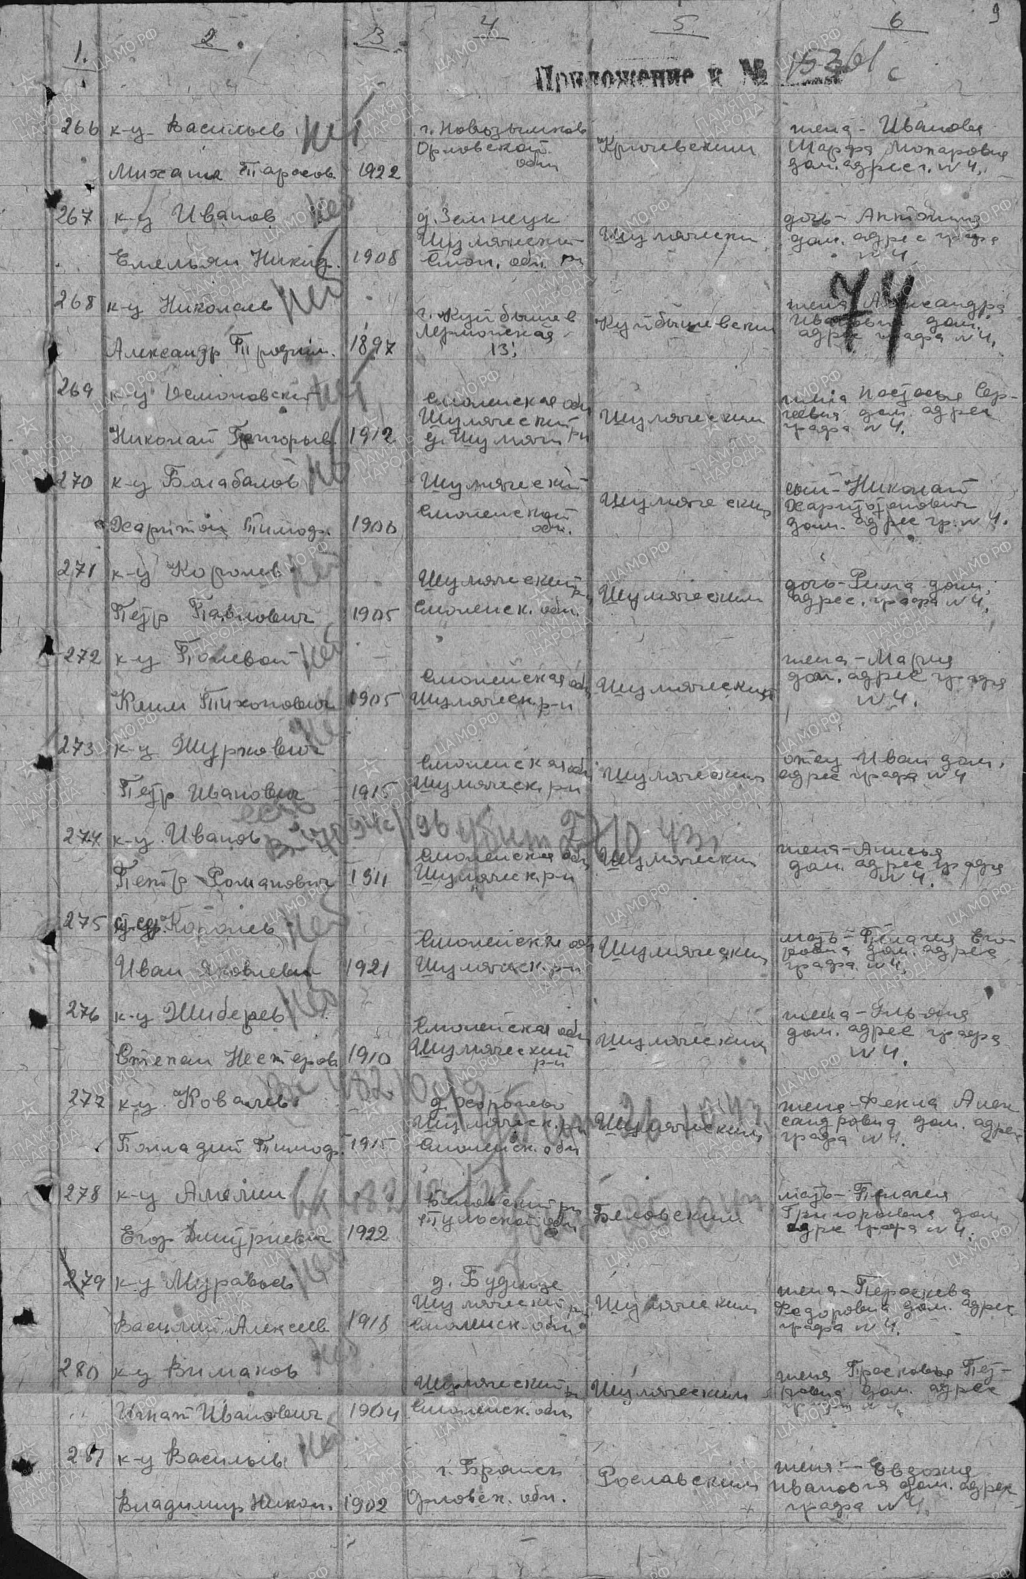 9
1. 2. 3. 4 5. 6
Приложение к № 15361 с
266 к-ц Васильев нет
Михаил Тарасов. 1922
г. Новозыбков
Орловской
обл
Кричевским
жена - Иванова
Марфа Макаровна
дом. адрес г. № 4.
267 к-ц Иванов нет
Емельян Никид. 1908
д. Земнецк
Шумяческ
Смол. обл. рн
Шумячески
дочь - Антонина
дом. адрес графа
№ 4
268 к-ц Николаев нет
Александр Трофим. 1897
г. Куйбышев
Лермонская
13.
Куйбышевским
жена Александра
дом.
адрес графа № 4.
74
269 к-ц нет
Николай Григорьев 1912
Смоленская обл
Шумяческий
д. Шумячи рн
Шумяческим
жена Настасья Сер-
геевна дом. адрес
графа № 4.
270 к-ц Балабанов нет
Харитон Тимоф. 1900
Шумяческий
Смоленской
обл.
Шумяческим
сын - Николай
Харитонович
дом. адрес гр. № 4.
271 к-ц Королев нет
Петр Павлович 1905
Шумяческий
рн
Смоленск. обл.
Шумяческим
дочь - Рима дом.
адрес. графа № 4.
272 к-ц Полевой нет
Клим Тихонович 1905
Смоленская обл
Шумяческ. р-н
Шумяческим
жена - Мария
дом. адрес графа
№ 4.
273 к-ц Журкович нет
Петр Иванович 1915
Смоленская обл
Шумяческ. р-н
Шумяческим
отец Иван дом.
адрес графа № 4
274 к-ц. Иванов есть
убит 27 10 43г
Петр Романович 1911
Смоленская обл
Шумяческ. р-н
Шумяческим
жена - Анисья
дом. адрес графа
№ 4.
275 Король нет
Иван Яковлевич 1921
Смоленская обл
Шумяческ. р-н
Шумяческим
мать - Пелагея Его-
ровна дом. адрес
графа № 4.
276 к-ц Жиберев нет
Степан Нестеров 1910
Смоленская обл
Шумяческий
р-н
Шумяческим
жена - Ульяна
дом. адрес графа
№ 4.
277 к-ц Ковалев
Геннадий Тимоф. 1915
Шумяческ. р-н
Смоленск. обл
Шумяческим
жена - Фекла Алек
сандровна дом. адрес
графа № 4.
278 к-ц Амелин
Егор Дмитриевич 1922
Беловский рн
Тульской обл
Беловским
мать - Пелагея
Григорьевна дом.
адрес графа № 4.
279 к-ц Муравьев нет
Василий Алексеев. 1918
д. Будище
Шумяческий рн
Смоленск. обл
Шумяческим
жена - Пераскева
Федоровна дом. адрес
графа № 4.
280 к-ц Вишаков нет
Игнат Иванович 1904
Шумяческий р
Смоленск. обл
Шумяческим
жена Прасковья Пет-
ровна дом. адрес
графа № 4
281 к-ц Васильев нет
Владимир Никон. 1902
г. Брянск
Орловск. обл.
Рославским
жена - Евдокия
Ивановна дом. адрес
графа № 4.